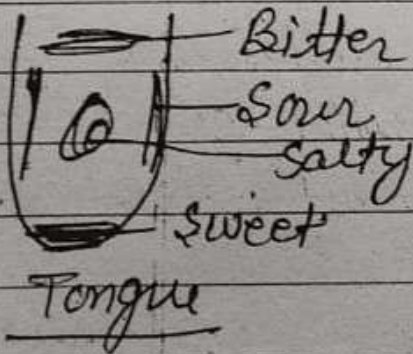 Bitter
Sour
Salty
Sweet
Tongue